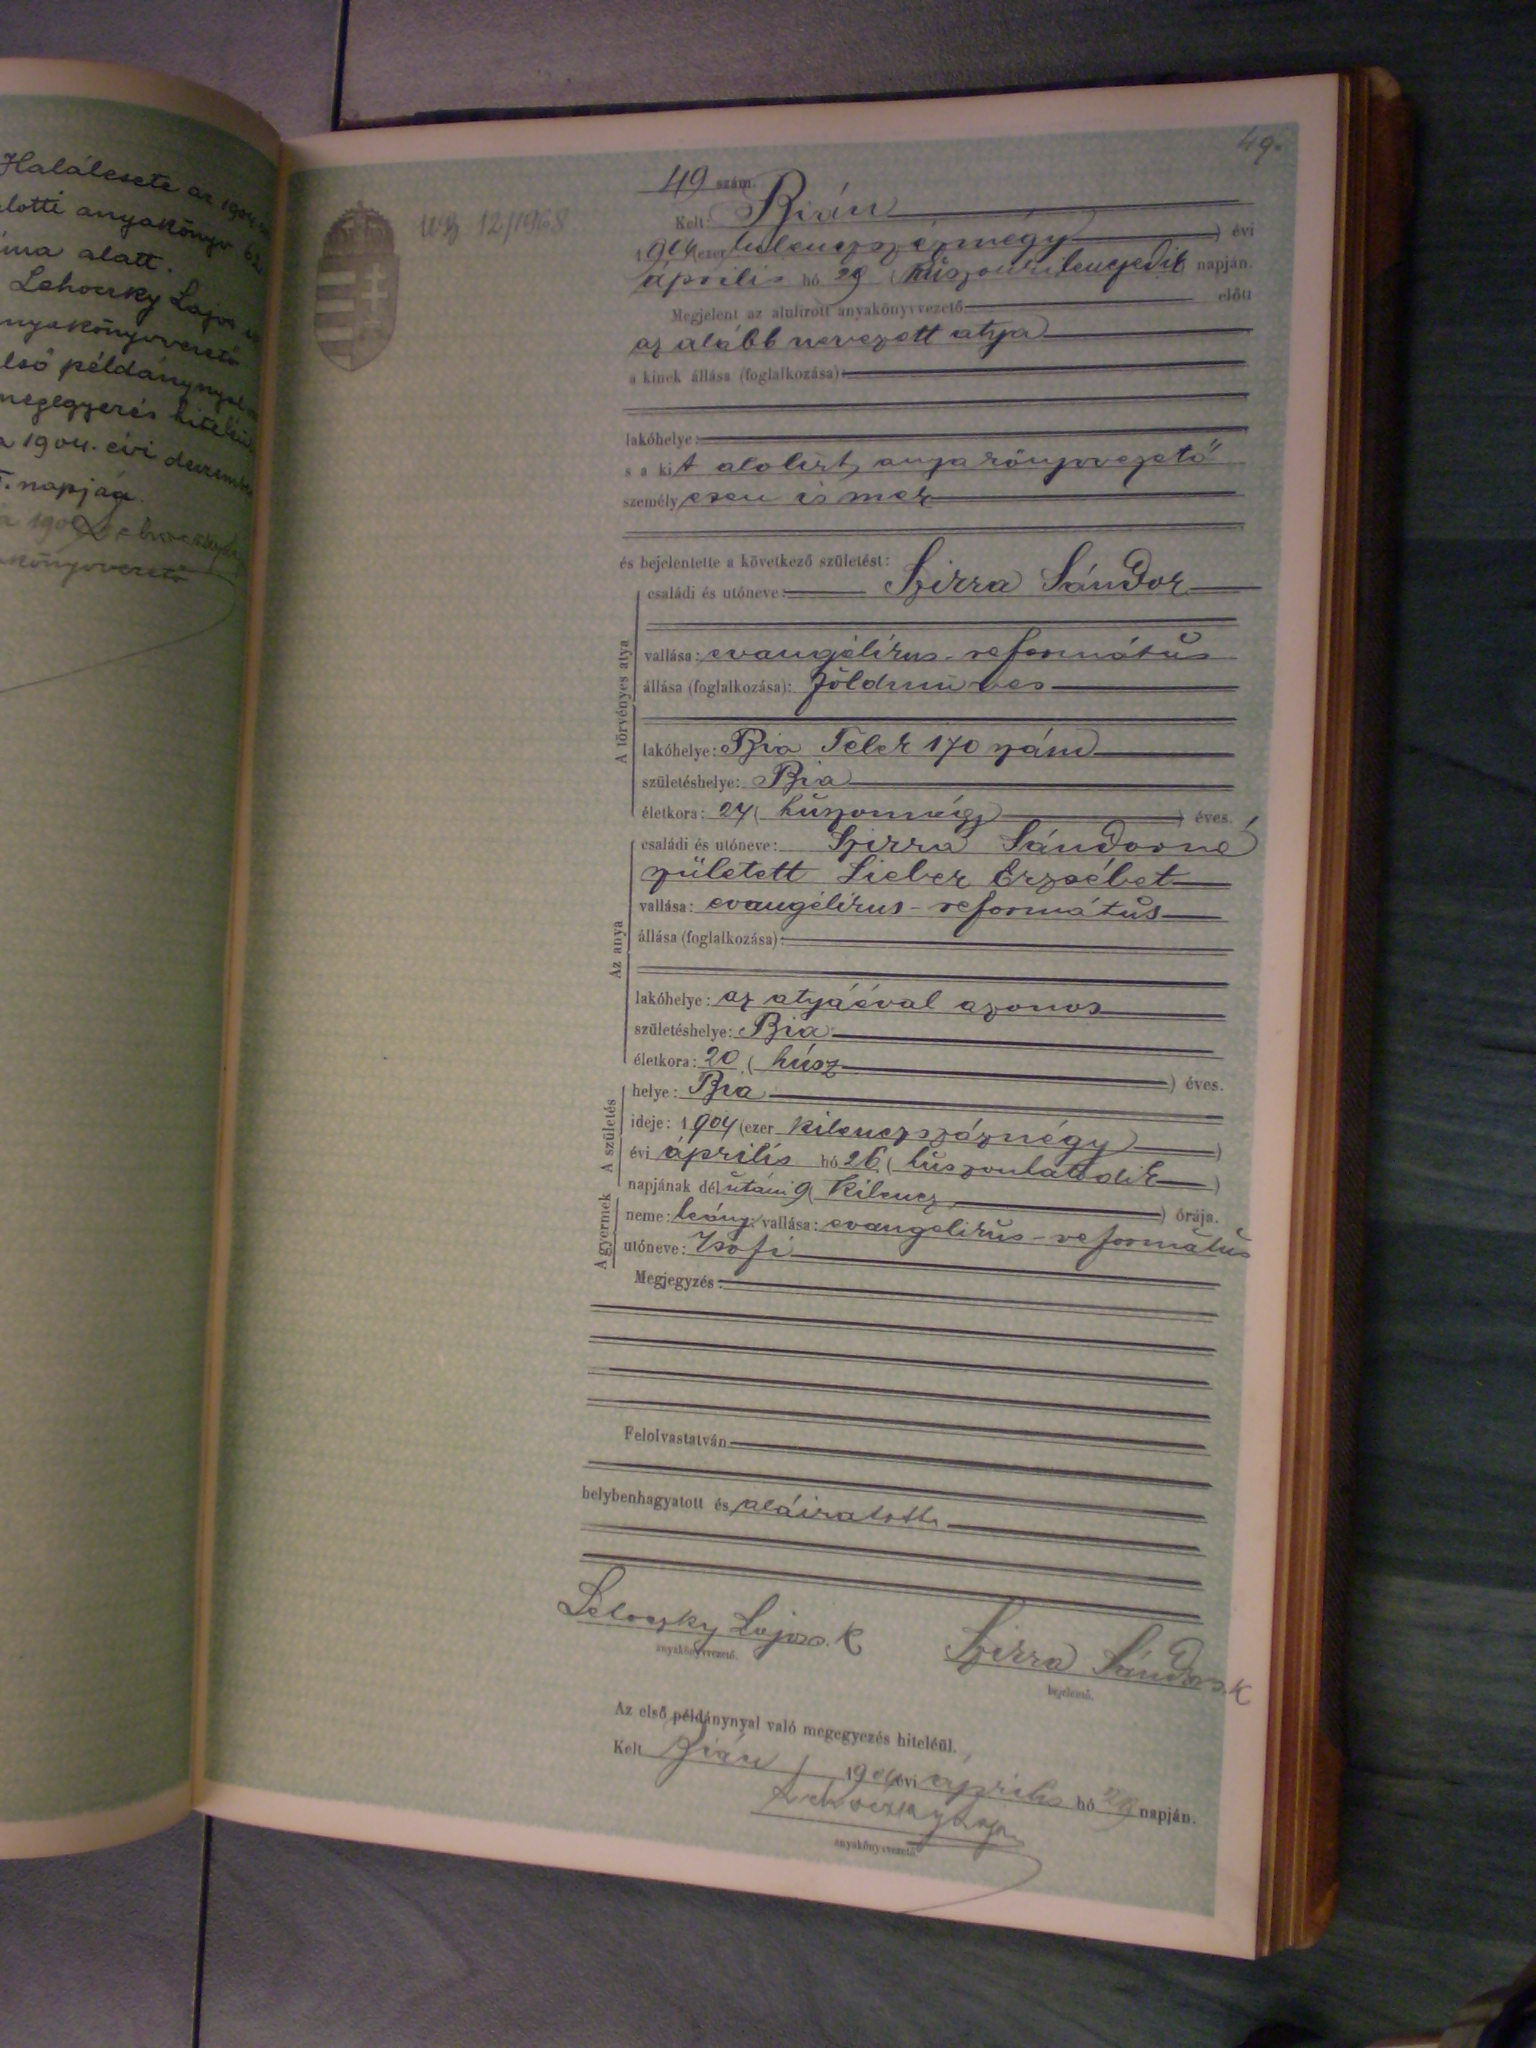 Halálesete az 1904
anyakönyv
alatt.
Lehoczky Lajos
anyakönyvvezető
első példánynyal
megegyezés hiteléül
1904. évi
napján
49.
12/1968.
49 szám.
Kelt: Bián
1904 (ezer kilenczszáznégy) évi
április hó 29 (huszonkilenczedik) napján.
Megjelent az alulirott anyakönyvvezető előtt
az alább nevezett atya
a kinek állása (foglalkozása)
lakóhelye:
s a kit alolirt anyakönyvvezető
személyesen ismer
és bejelentette a következő születést:
A törvényes atya
családi és utóneve: Szikra Sándor
vallása: evangélikus-református
állása (foglalkozása): földmüves
lakóhelye: Bia Telek 170 szám
születéshelye: Bia
életkora: 24 (huszonnégy) éves.
Az anya
családi és utóneve: Szikra Sándorné
született Lieber Erzsébet
vallása: evangélikus-református
állása (foglalkozása):
lakóhelye: az atyáéval azonos
születéshelye: Bia
életkora: 20 (húsz) éves.
A születés
helye: Bia
ideje: 1904 (ezer kilenczszáznégy)
évi április hó 26 (huszonhatodik)
napjának délutáni 9 (kilencz) órája.
A gyermek
neme: leány; vallása: evangelikus-református
utóneve: Zsofi
Megjegyzés:
Felolvastatván
helybenhagyatott és aláiratott.
Lehoczky Lajos s. k
anyakönyvvezető.
Szikra Sándor s. k
bejelentő.
Az első példánynyal való megegyezés hiteléül.
Kelt Bián, 1904 évi április hó 29 napján.
Lehoczky Lajos
anyakönyvvezető